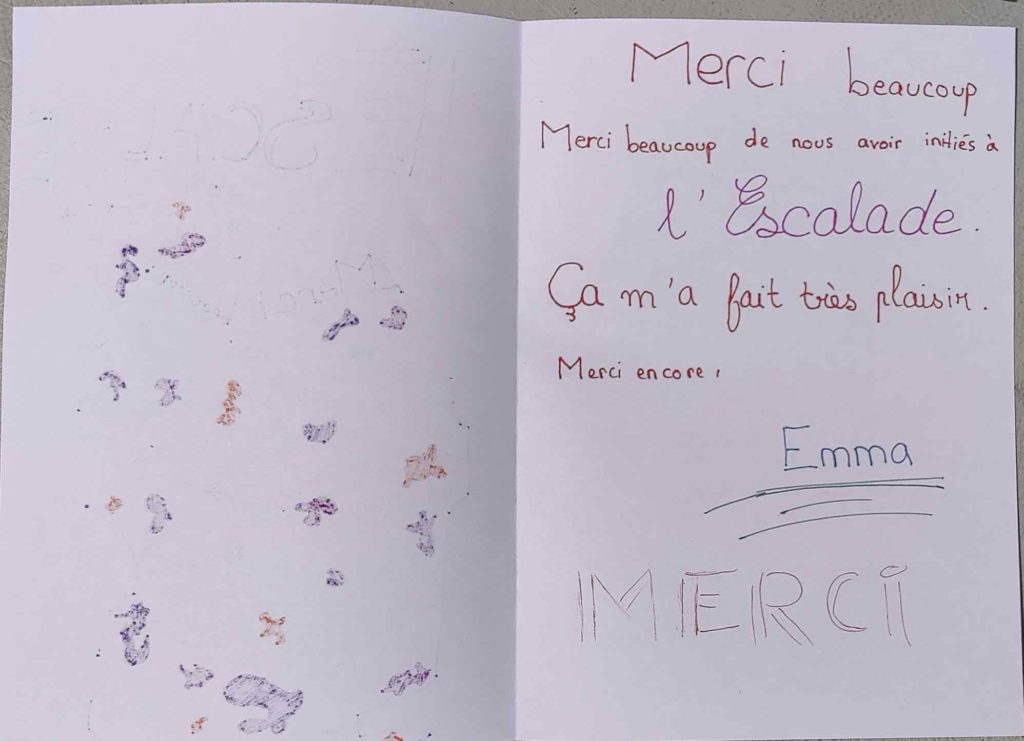 Merci beaucoup
Merci beaucoup de nous avoir initiés à
l'Escalade.
Ça m'a fait très plaisir.
Merci encore,
Emma
MERCI